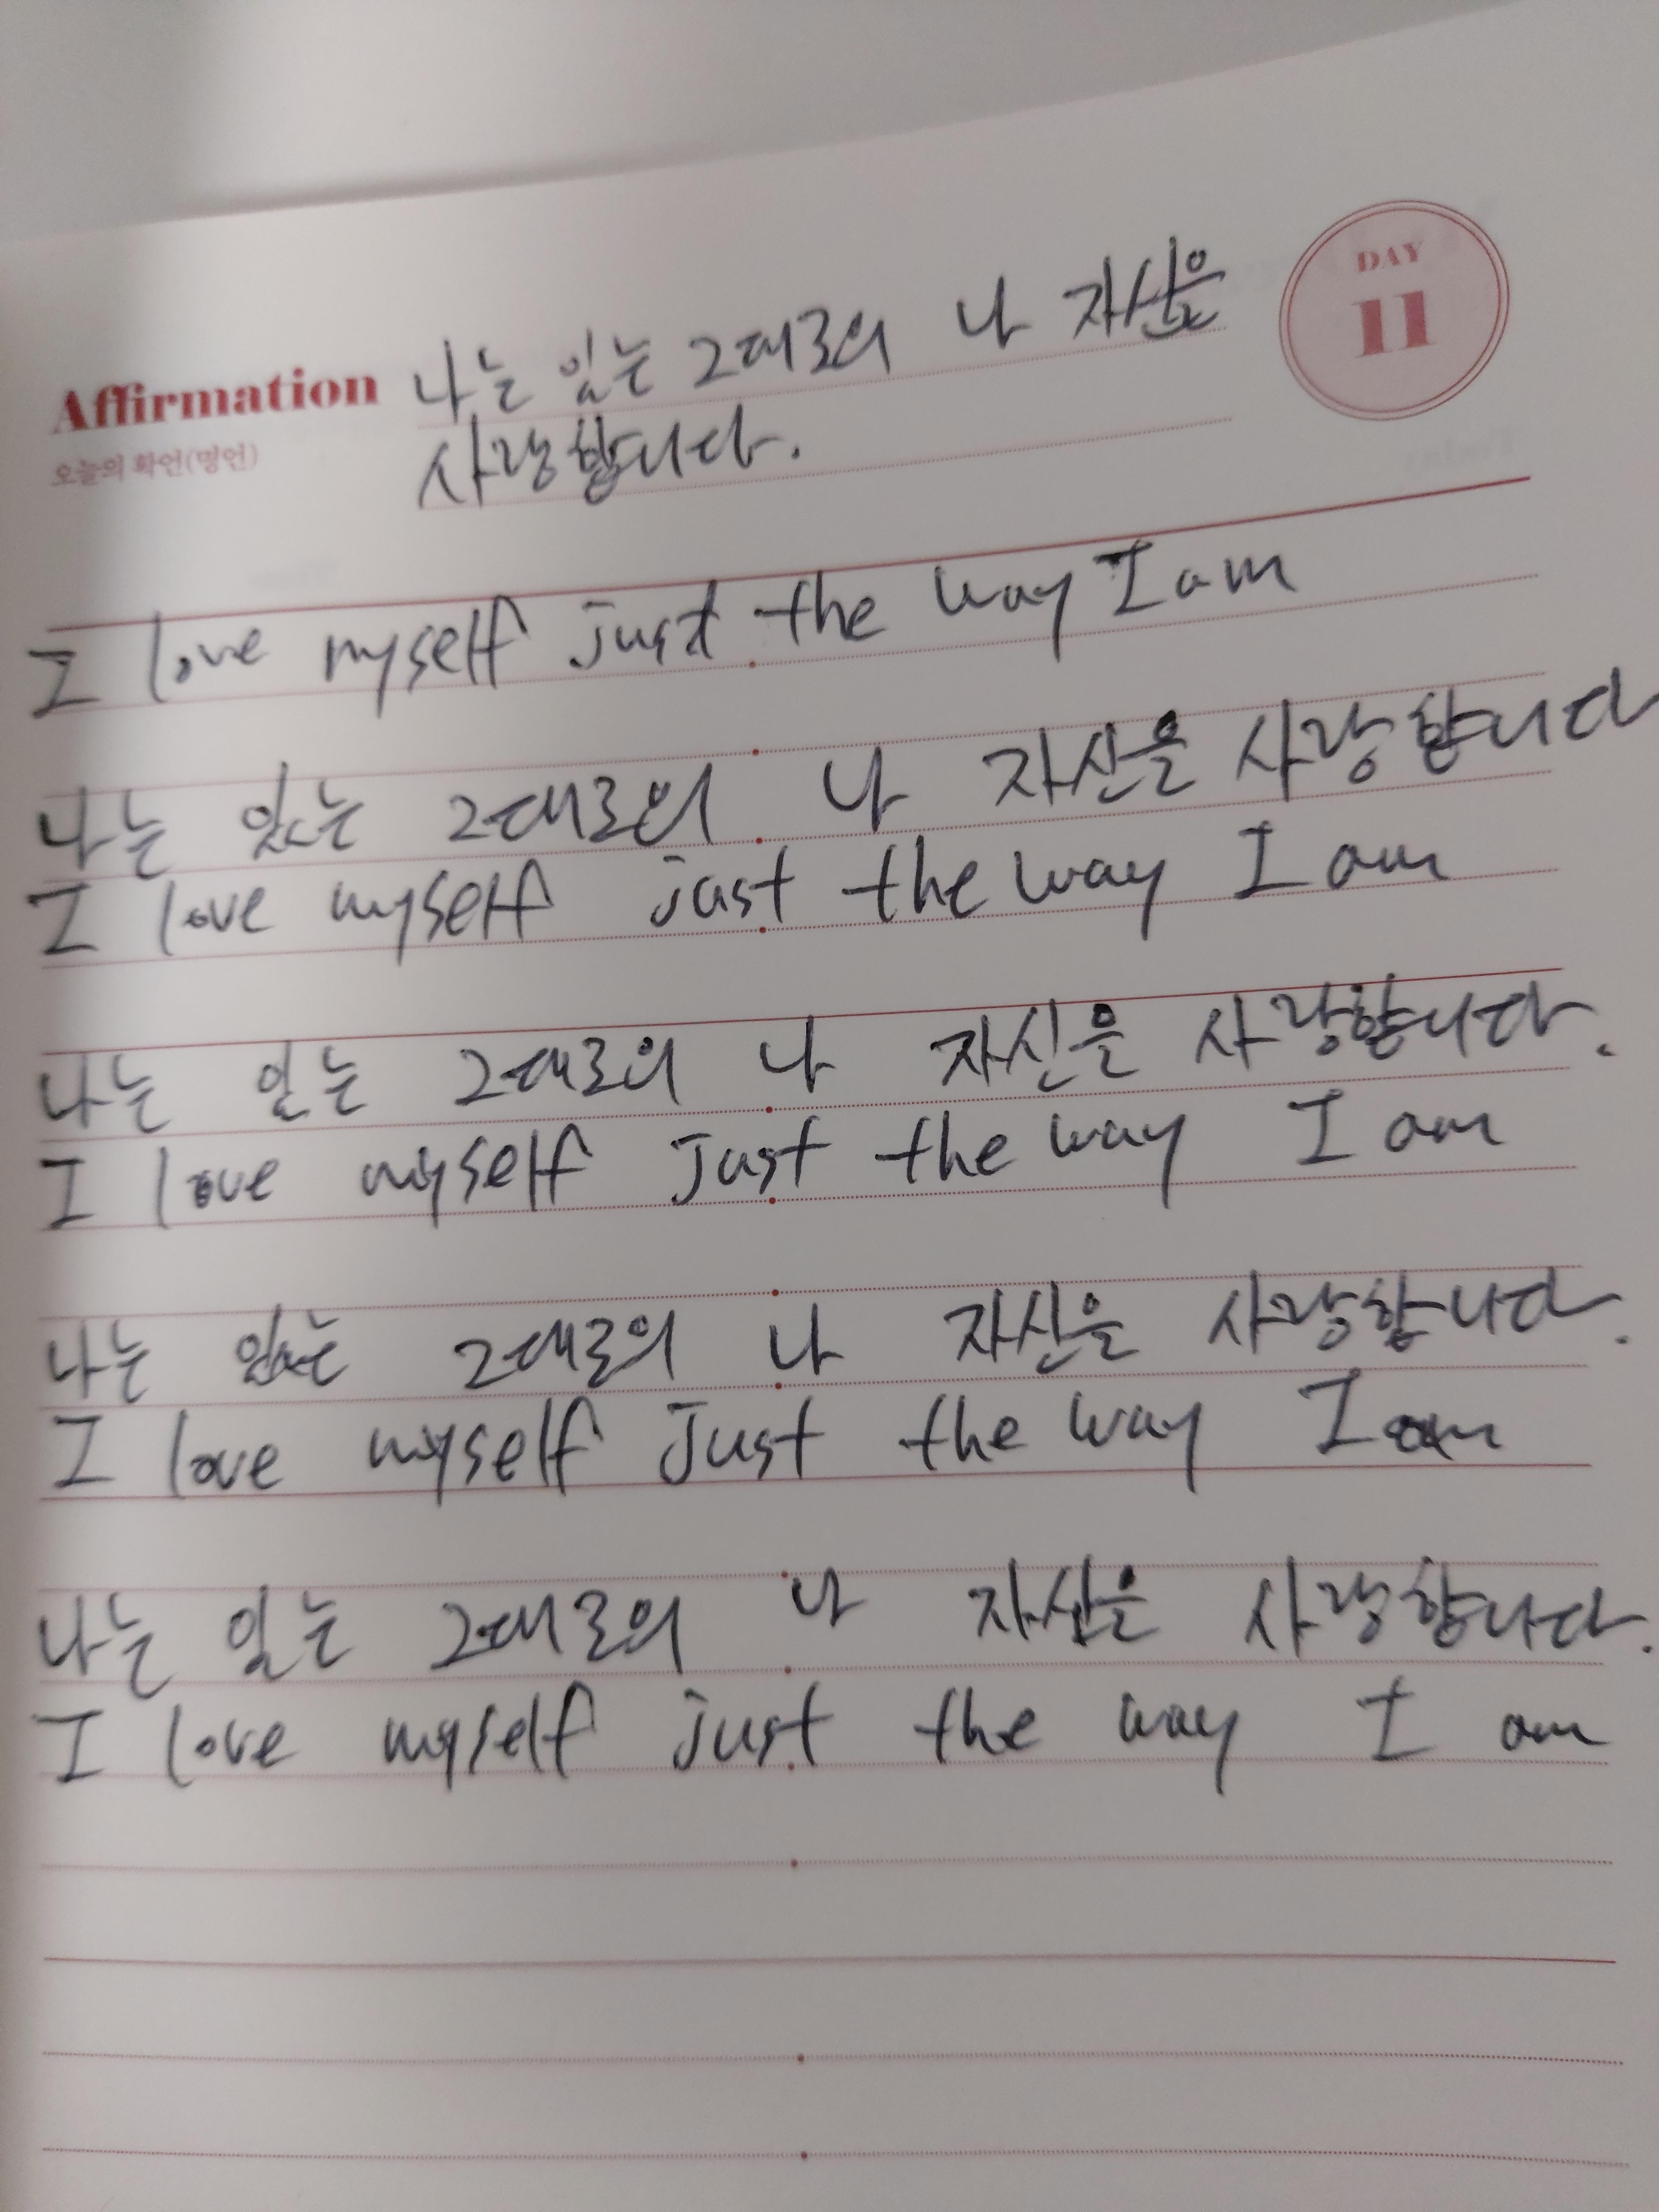 DAY
11
Affirmation 나는 있는 그대로의 나 자신을
오늘의 확언(명언) 사랑합니다.
I love myself just the way I am
나는 있는 그대로의 나 자신을 사랑합니다
I love myself just the way I am
나는 있는 그대로의 나 자신을 사랑합니다.
I love myself Just the way I am
나는 있는 그대로의 나 자신을 사랑합니다.
I love myself Just the way I am
나는 있는 그대로의 나 자신은 사랑합니다.
I love myself just the way I am